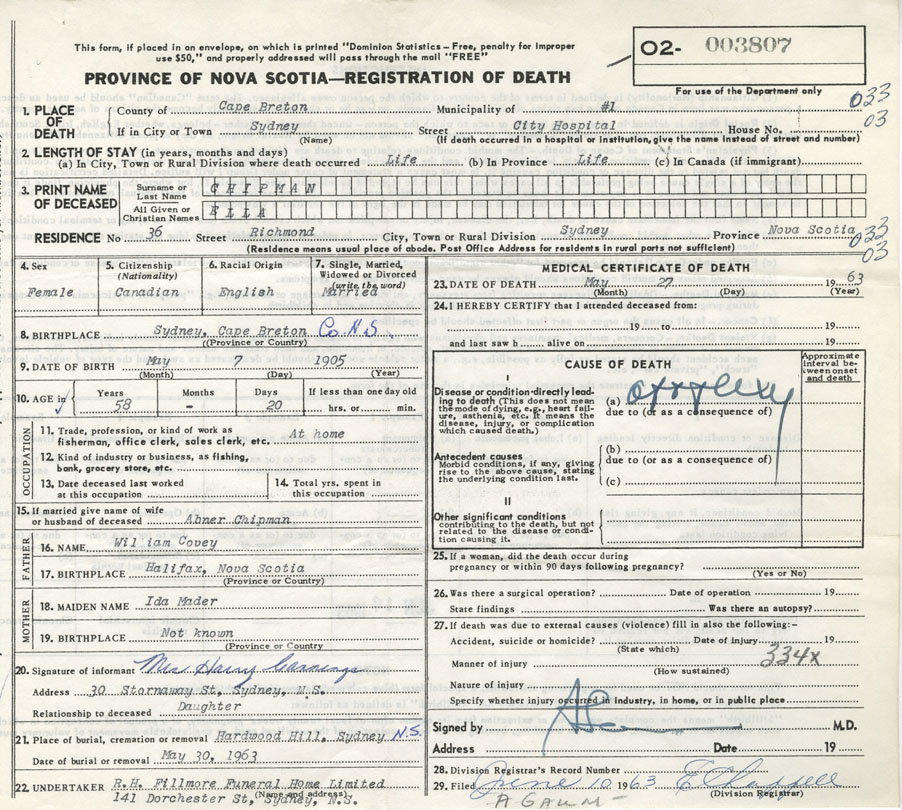 This form, if placed in an envelope, on which is printed "Dominion Statistics – Free, penalty for improper
use $50," and properly addressed will pass through the mail "FREE"
O2- 003807
PROVINCE OF NOVA SCOTIA—REGISTRATION OF DEATH
For use of the Department only
033
03
1. PLACE OF DEATH
County of Cape Breton Municipality of #1
If in City or Town Sydney Street City Hospital House No.
(Name) (If death occurred in a hospital or institution, give the name instead of street and number)
2. LENGTH OF STAY (in years, months and days)
(a) In City, Town or Rural Division where death occurred Life (b) In Province Life (c) In Canada (if immigrant)
3. PRINT NAME OF DECEASED
Surname or Last Name CHIPMAN
All Given or Christian Names ELLA
RESIDENCE No 36 Street Richmond City, Town or Rural Division Sydney Province Nova Scotia
033
03
(Residence means usual place of abode. Post Office Address for residents in rural parts not sufficient)
4. Sex
Female
5. Citizenship (Nationality)
Canadian
6. Racial Origin
English
7. Single, Married, Widowed or Divorced (write the word)
Married
8. BIRTHPLACE Sydney, Cape Breton Co. N.S.
(Province or Country)
9. DATE OF BIRTH May 7 1905
(Month) (Day) (Year)
10. AGE in
Years Months Days If less than one day old
58 - 20 hrs. or min.
OCCUPATION
11. Trade, profession, or kind of work as
fisherman, office clerk, sales clerk, etc. At home
12. Kind of industry or business, as fishing,
bank, grocery store, etc.
13. Date deceased last worked
at this occupation
14. Total yrs. spent in
this occupation
15. If married give name of wife
or husband of deceased Abner Chipman
FATHER
16. NAME William Covey
17. BIRTHPLACE Halifax, Nova Scotia
(Province or Country)
MOTHER
18. MAIDEN NAME Ida Mader
19. BIRTHPLACE Not known
(Province or Country)
20. Signature of informant Mrs Harry
Address 30 Stornaway St, Sydney, N.S.
Relationship to deceased Daughter
21. Place of burial, cremation or removal Hardwood Hill, Sydney N.S.
Date of burial or removal May 30, 1963
22. UNDERTAKER R.H. Fillmore Funeral Home Limited
(Name and address)
141 Dorchester St, Sydney, N.S.
MEDICAL CERTIFICATE OF DEATH
23. DATE OF DEATH May 27 1963
(Month) (Day) (Year)
24. I HEREBY CERTIFY that I attended deceased from:
19 to 19
and last saw h alive on 19
CAUSE OF DEATH
Approximate interval between onset and death
I
Disease or condition directly leading to death (This does not mean the mode of dying, e.g., heart failure, asthenia, etc. It means the disease, injury, or complication which caused death.)
(a)
due to (or as a consequence of)
Antecedent causes
Morbid conditions, if any, giving rise to the above cause, stating the underlying condition last.
(b)
due to (or as a consequence of)
(c)
II
Other significant conditions
contributing to the death, but not related to the disease or condition causing it.
25. If a woman, did the death occur during
pregnancy or within 90 days following pregnancy?
(Yes or No)
26. Was there a surgical operation? Date of operation 19
State findings Was there an autopsy?
27. If death was due to external causes (violence) fill in also the following:–
Accident, suicide or homicide? Date of injury 19
(State which)
334x
Manner of injury
(How sustained)
Nature of injury
Specify whether injury occurred in industry, in home, or in public place
Signed by M.D.
Address Date 19
28. Division Registrar's Record Number
29. Filed June 10 1963
(Division Registrar)